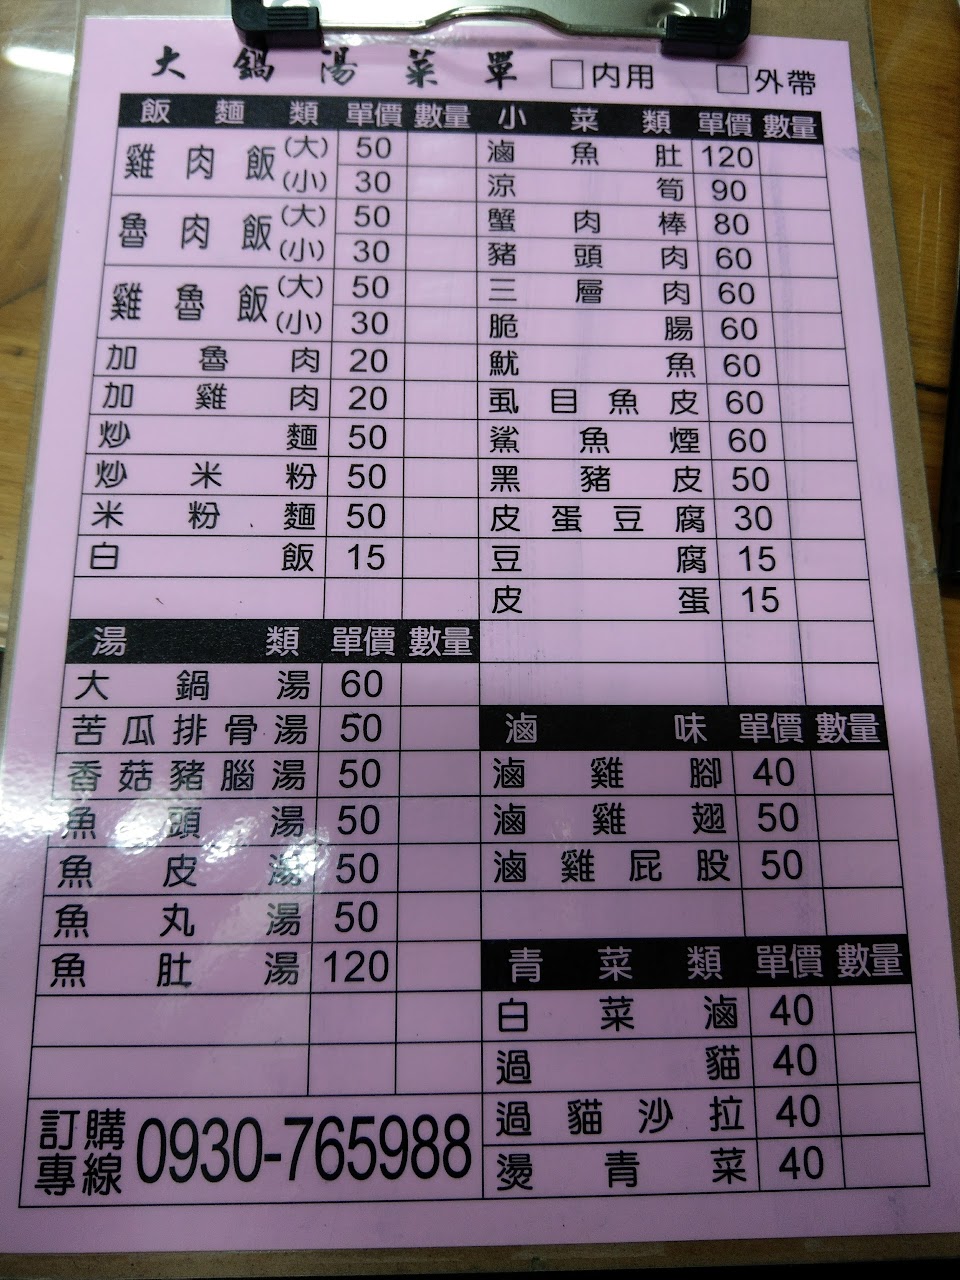 大鍋湯菜單 □內用 □外帶
飯麵類 單價 數量
雞肉飯 (大) 50
(小) 30
魯肉飯 (大) 50
(小) 30
雞魯飯 (大) 50
(小) 30
加魯肉 20
加雞肉 20
炒麵 50
炒米粉 50
米粉麵 50
白飯 15
湯類 單價 數量
大鍋湯 60
苦瓜排骨湯 50
香菇豬腦湯 50
魚頭湯 50
魚皮湯 50
魚丸湯 50
魚肚湯 120
訂購專線 0930-765988
小菜類 單價 數量
滷魚肚 120
涼筍 90
蟹肉棒 80
豬頭肉 60
三層肉 60
脆腸 60
魷魚 60
虱目魚皮 60
鯊魚煙 60
黑豬皮 50
皮蛋豆腐 30
豆腐 15
皮蛋 15
滷味 單價 數量
滷雞腳 40
滷雞翅 50
滷雞屁股 50
青菜類 單價 數量
白菜滷 40
過貓 40
過貓沙拉 40
燙青菜 40